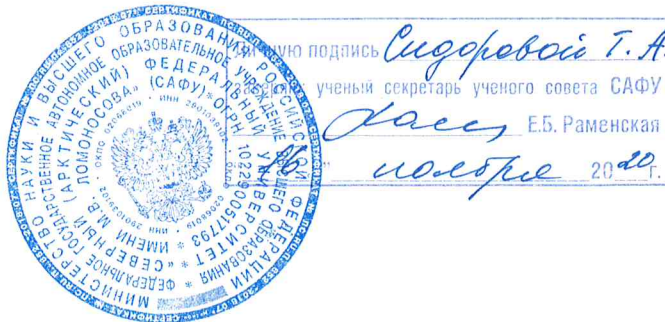 Личную подпись Сидоровой Т. А.
заверяю ученый секретарь ученого совета САФУ
Е.Б. Раменская
"16" ноября 2020 г.
МИНИСТЕРСТВО НАУКИ И ВЫСШЕГО ОБРАЗОВАНИЯ РОССИЙСКОЙ ФЕДЕРАЦИИ
ФЕДЕРАЛЬНОЕ ГОСУДАРСТВЕННОЕ АВТОНОМНОЕ ОБРАЗОВАТЕЛЬНОЕ УЧРЕЖДЕНИЕ ВЫСШЕГО ОБРАЗОВАНИЯ
«СЕВЕРНЫЙ (АРКТИЧЕСКИЙ) ФЕДЕРАЛЬНЫЙ УНИВЕРСИТЕТ ИМЕНИ М.В. ЛОМОНОСОВА»
(САФУ) * ОГРН 1022900517793